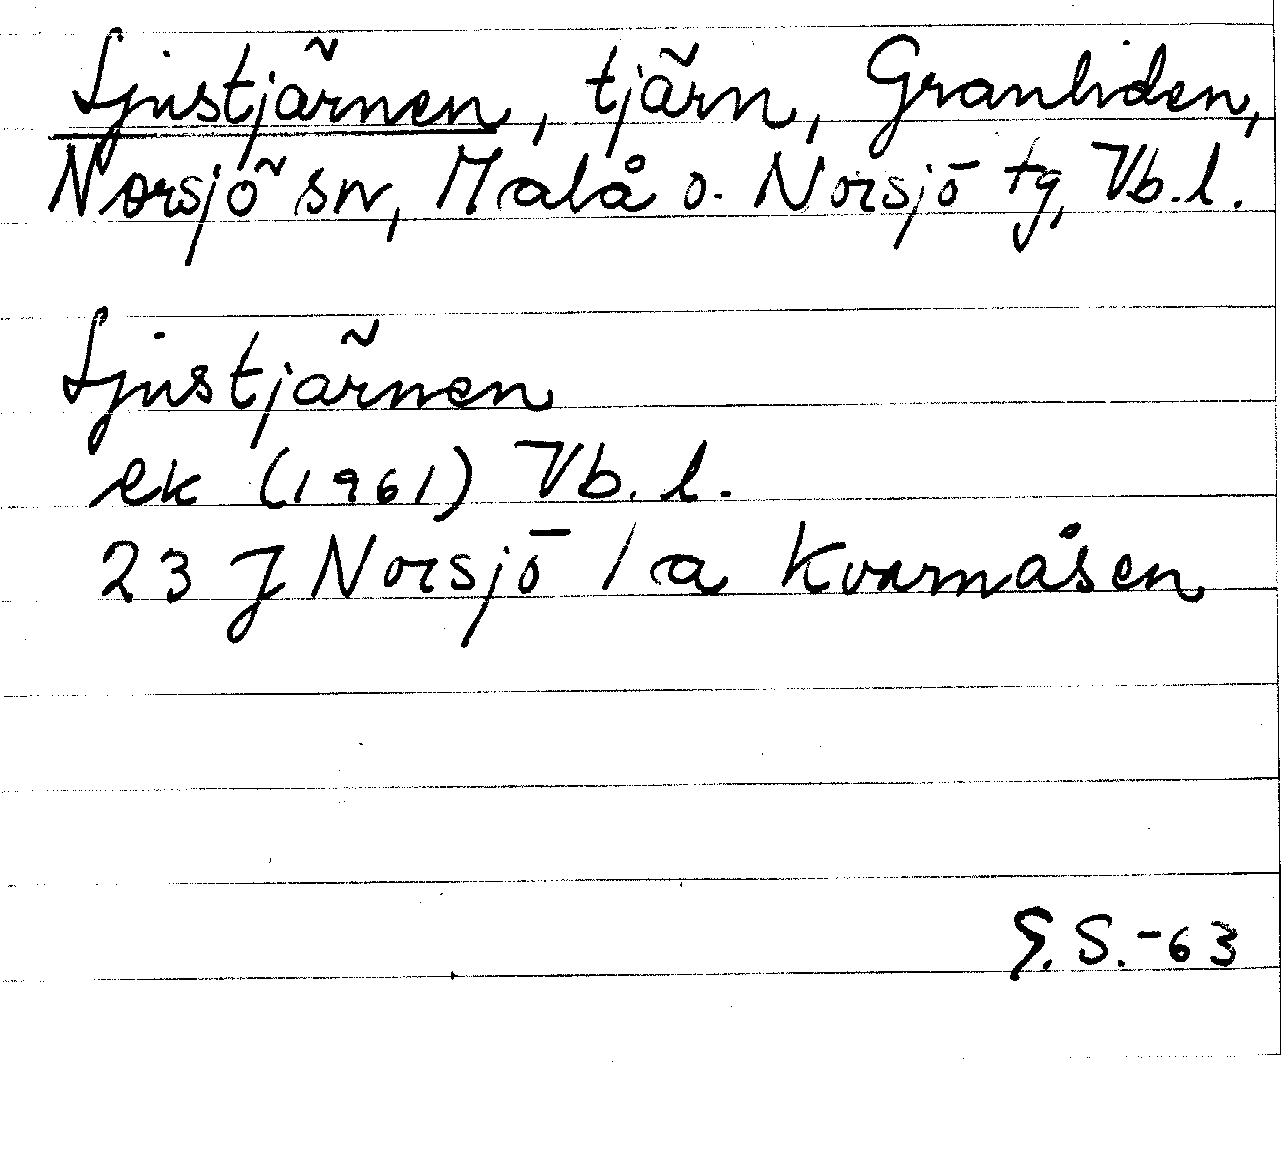 Ljustjärnen, tjärn, Granliden,
Norsjö sn, Malå o. Norsjö tg, Vb.l.
Ljustjärnen
ek (1961) Vb.l.
23 J Norsjö 1 a Kvarnåsen
G.S.-63